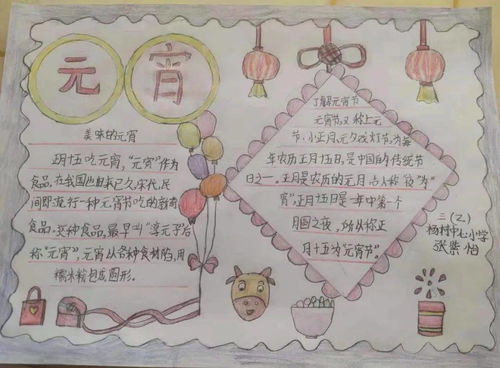 元宵
美味的元宵
正月十五吃元宵，“元宵”作为
食品，在我国也由来已久，宋代，民
间即流行一种元宵节吃的新奇
食品。这种食品，最早叫“浮元子”后
称“元宵”，元宵以各种食材馅，用
糯米粉包成圆形。
了解元宵节
元宵节又称上元
节、小正月、元夕或灯节，为每
年农历正月十五日，是中国的传统节
日之一。正月是农历的元月，古人称“夜”为“
宵”，正月十五日是一年中第一个
月圆之夜，
月十五为元宵节”。
三（乙）
杨村中心小学
张紫怡